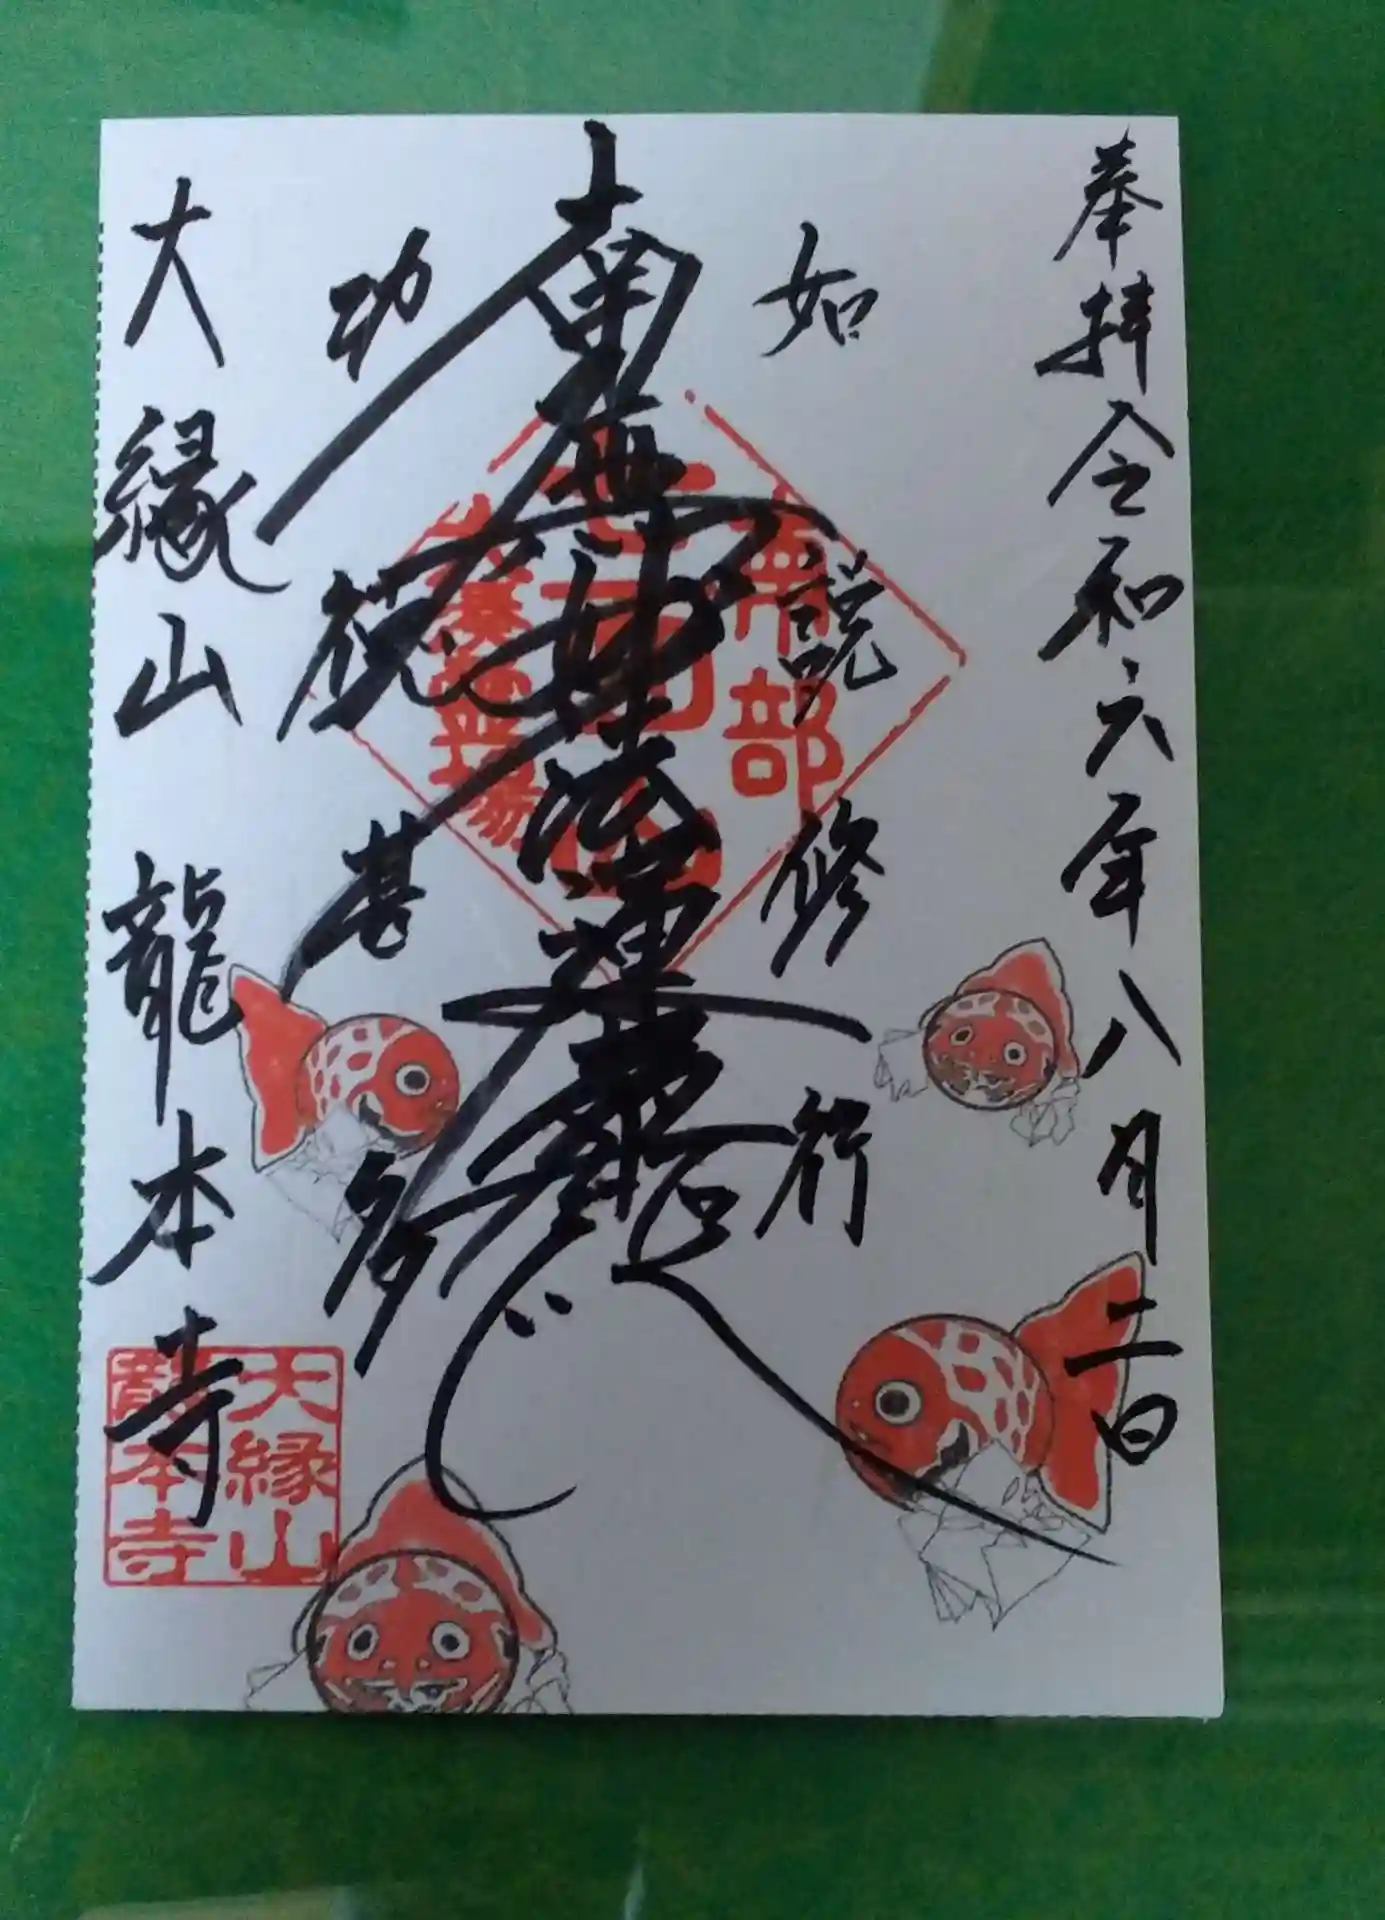 奉拝令和六年八月二日
如説修行
南無妙法蓮華経
功徳甚多
大縁山龍本寺
南部
大縁山
龍本寺